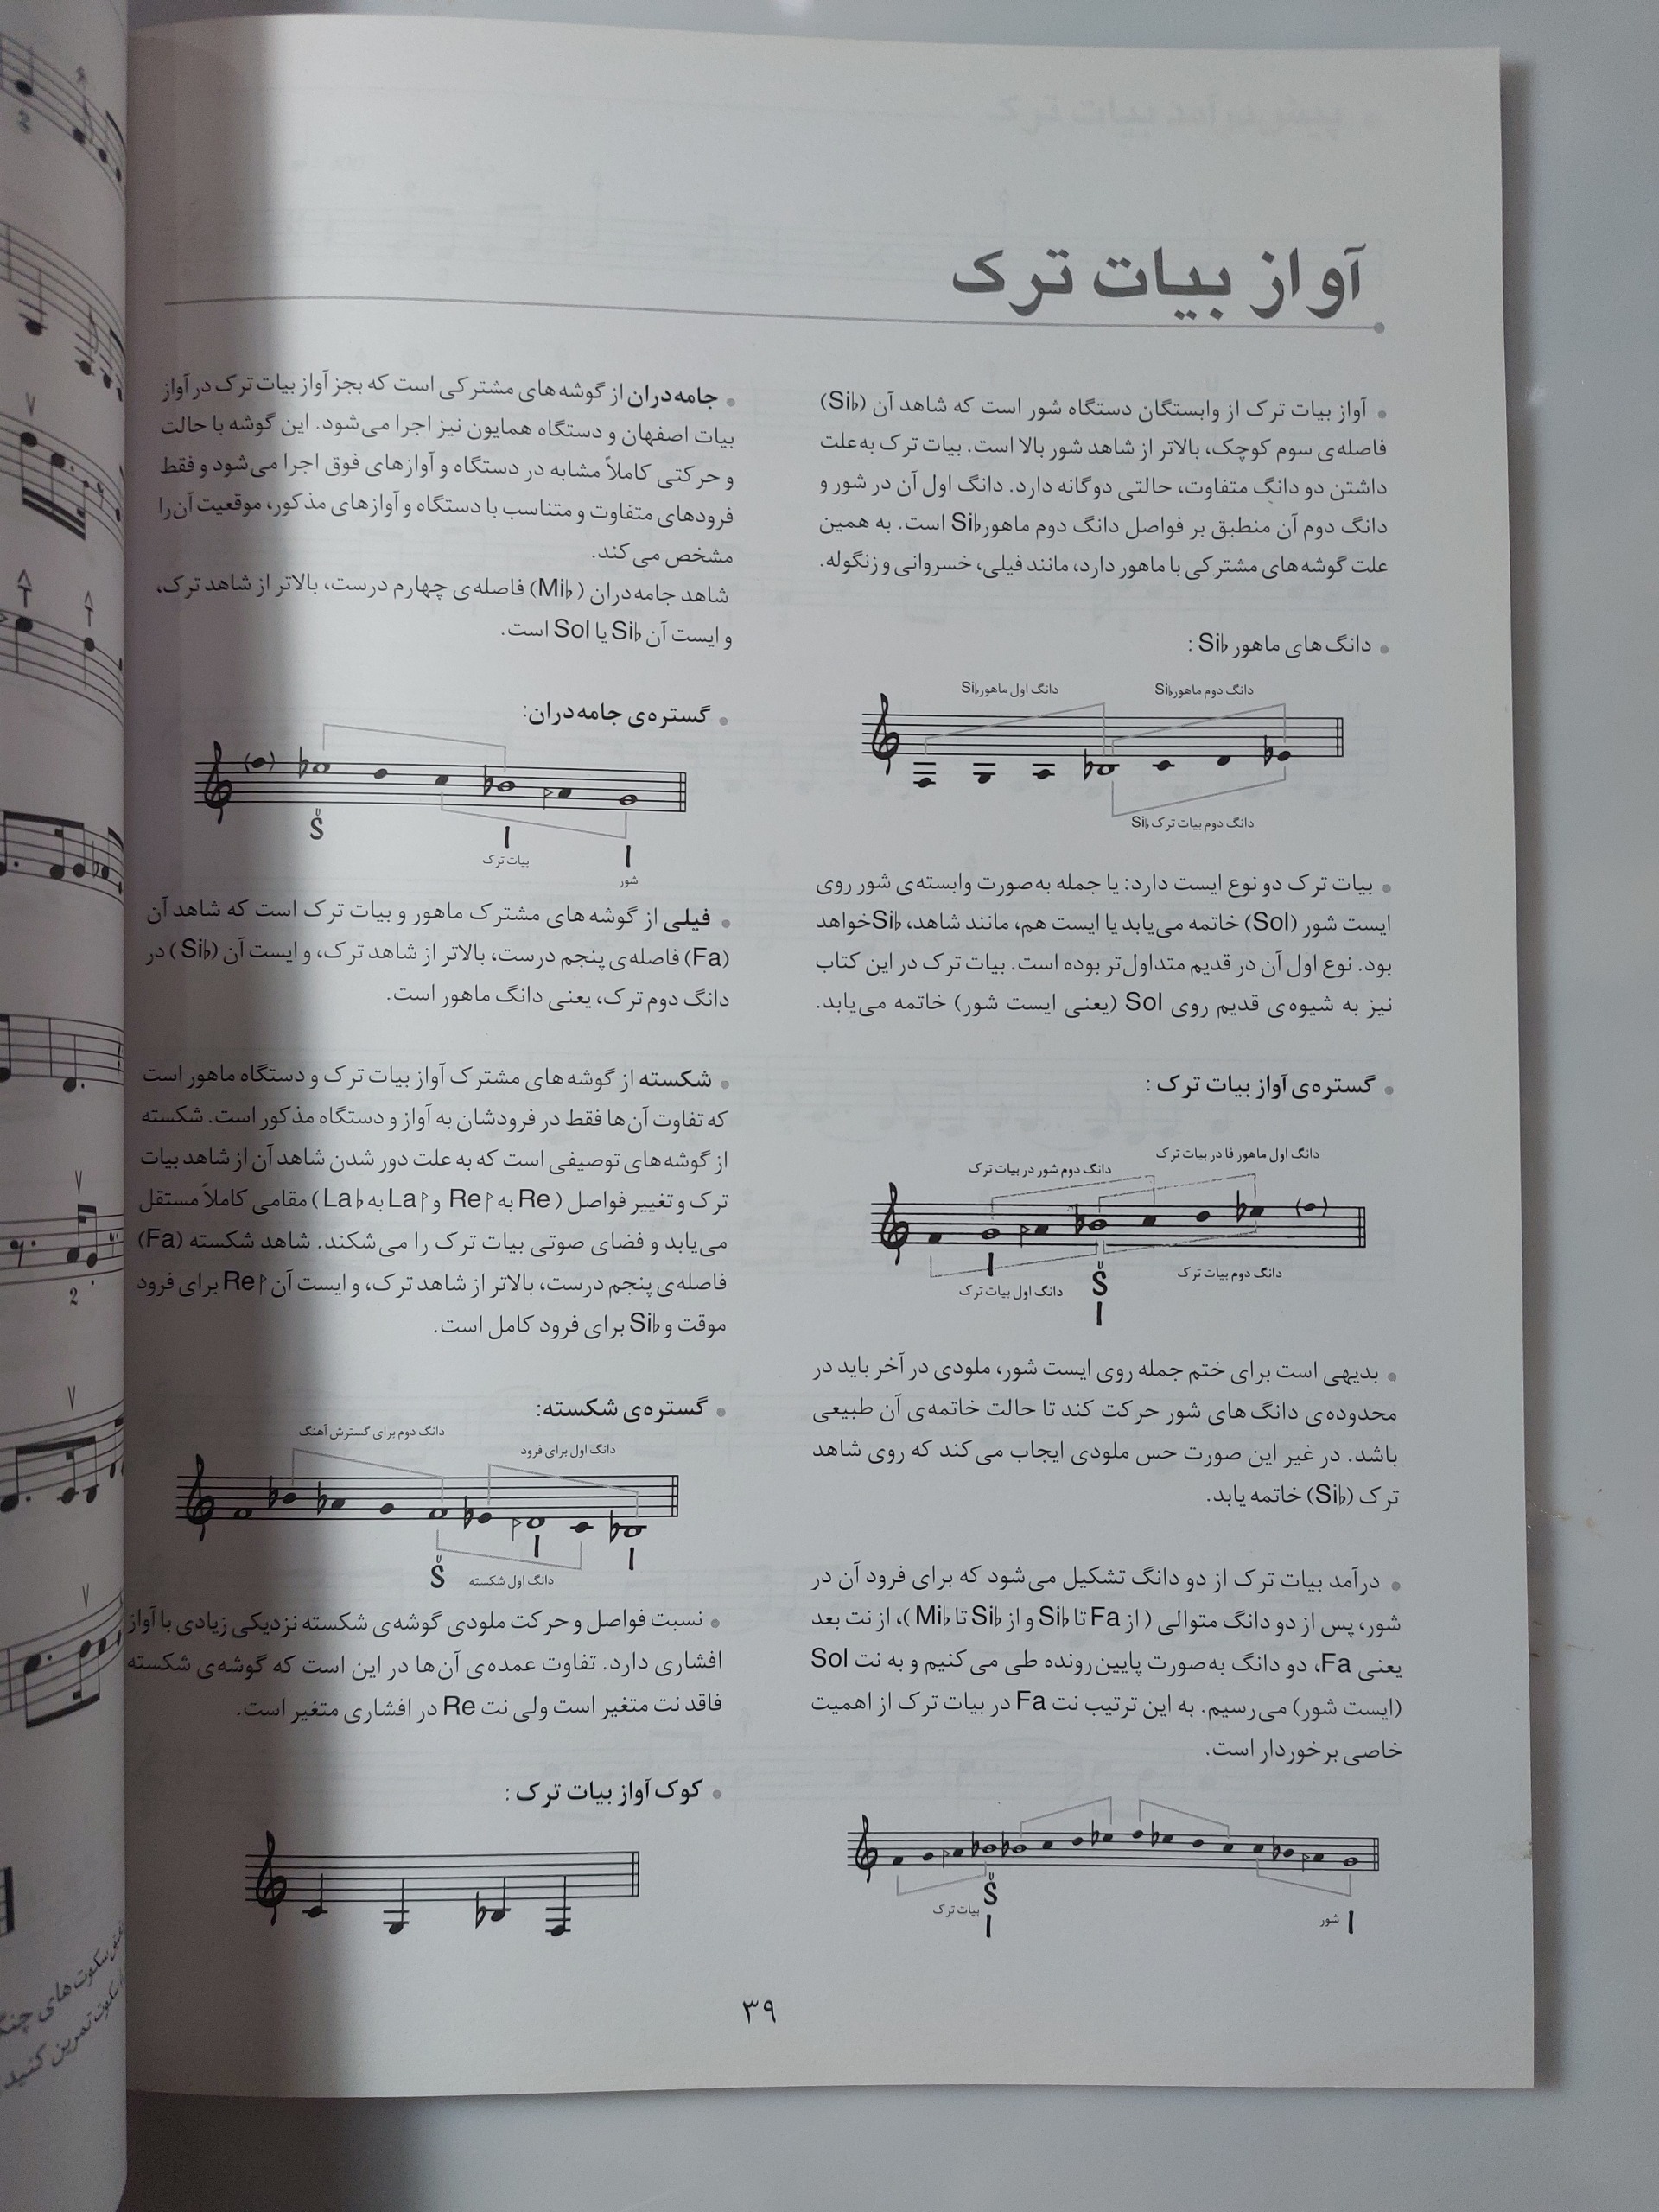 آواز بیات ترک
• آواز بیات ترک از وابستگان دستگاه شور است که شاهد آن (Si♭)
فاصله‌ی سوم کوچک، بالاتر از شاهد شور بالا است. بیات ترک به‌علت
داشتن دو دانگ متفاوت، حالتی دوگانه دارد. دانگ اول آن در شور و
دانگ دوم آن منطبق بر فواصل دانگ دوم ماهور Si♭ است. به همین
علت گوشه‌های مشترکی با ماهور دارد، مانند فیلی، خسروانی و زنگوله.
• دانگ‌های ماهور Si♭ :
دانگ دوم ماهور Si♭
دانگ اول ماهور Si♭
دانگ دوم بیات ترک Si♭
• بیات ترک دو نوع ایست دارد: یا جمله به‌صورت وابسته‌ی شور روی
ایست شور (Sol) خاتمه می‌یابد یا ایست هم، مانند شاهد، Si♭ خواهد
بود. نوع اول آن در قدیم متداول‌تر بوده است. بیات ترک در این کتاب
نیز به شیوه‌ی قدیم روی Sol (یعنی ایست شور) خاتمه می‌یابد.
• گستره‌ی آواز بیات ترک :
دانگ اول ماهور فا در بیات ترک
دانگ دوم شور در بیات ترک
دانگ دوم بیات ترک
دانگ اول بیات ترک
• بدیهی است برای ختم جمله روی ایست شور، ملودی در آخر باید در
محدوده‌ی دانگ های شور حرکت کند تا حالت خاتمه‌ی آن طبیعی
باشد. در غیر این صورت حس ملودی ایجاب می‌کند که روی شاهد
ترک (Si♭) خاتمه یابد.
• درآمد بیات ترک از دو دانگ تشکیل می‌شود که برای فرود آن در
شور، پس از دو دانگ متوالی ( از Fa تا Si♭ و از Si♭ تا Mi♭ )، از نت بعد
یعنی Fa، دو دانگ به‌صورت پایین‌رونده طی می‌کنیم و به نت Sol
(ایست شور) می‌رسیم. به این ترتیب نت Fa در بیات ترک از اهمیت
خاصی برخوردار است.
بیات ترک
شور
• جامه‌دران از گوشه‌های مشترکی است که بجز آواز بیات ترک در آواز
بیات اصفهان و دستگاه همایون نیز اجرا می‌شود. این گوشه با حالت
و حرکتی کاملاً مشابه در دستگاه و آوازهای فوق اجرا می‌شود و فقط
فرودهای متفاوت و متناسب با دستگاه و آوازهای مذکور، موقعیت آن‌را
مشخص می‌کند.
شاهد جامه‌دران (Mi♭) فاصله‌ی چهارم درست، بالاتر از شاهد ترک،
و ایست آن Si♭ یا Sol است.
• گستره‌ی جامه‌دران:
بیات ترک
شور
• فیلی از گوشه های مشترک ماهور و بیات ترک است که شاهد آن
(Fa) فاصله‌ی پنجم درست، بالاتر از شاهد ترک، و ایست آن (Si♭) در
دانگ دوم ترک، یعنی دانگ ماهور است.
• شکسته از گوشه‌های مشترک آواز بیات ترک و دستگاه ماهور است
که تفاوت آن‌ها فقط در فرودشان به آواز و دستگاه مذکور است. شکسته
از گوشه‌های توصیفی است که به علت دور شدن شاهد آن از شاهد بیات
ترک و تغییر فواصل ( Re به Re و La به La♭ ) مقامی کاملاً مستقل
می‌یابد و فضای صوتی بیات ترک را می‌شکند. شاهد شکسته (Fa)
فاصله‌ی پنجم درست، بالاتر از شاهد ترک، و ایست آن Re برای فرود
موقت و Si♭ برای فرود کامل است.
• گستره‌ی شکسته:
دانگ دوم برای گسترش آهنگ
دانگ اول برای فرود
دانگ اول شکسته
• نسبت فواصل و حرکت ملودی گوشه‌ی شکسته نزدیکی زیادی با آواز
افشاری دارد. تفاوت عمده‌ی آن‌ها در این است که گوشه‌ی شکسته
فاقد نت متغیر است ولی نت Re در افشاری متغیر است.
• کوک آواز بیات ترک :
۳۹